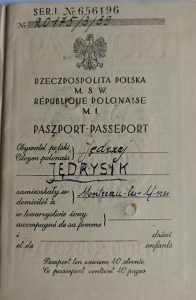 SER. I. № 656196
№ 20175/3/39
RZECZPOSPOLITA POLSKA
M. S. W.
RÉPUBLIQUE POLONAISE
M. I.
PASZPORT-PASSEPORT
Obywatel polski Jędrzej
Citoyen polonais
JĘDRYSIK
zamieszkały w Montceau-les-Mines
domicilié à
w towarzystwie żony
accompagné de sa femme
i dzieci
et de enfants
Paszport ten zawiera 40 stronic
Ce passeport contient 40 pages